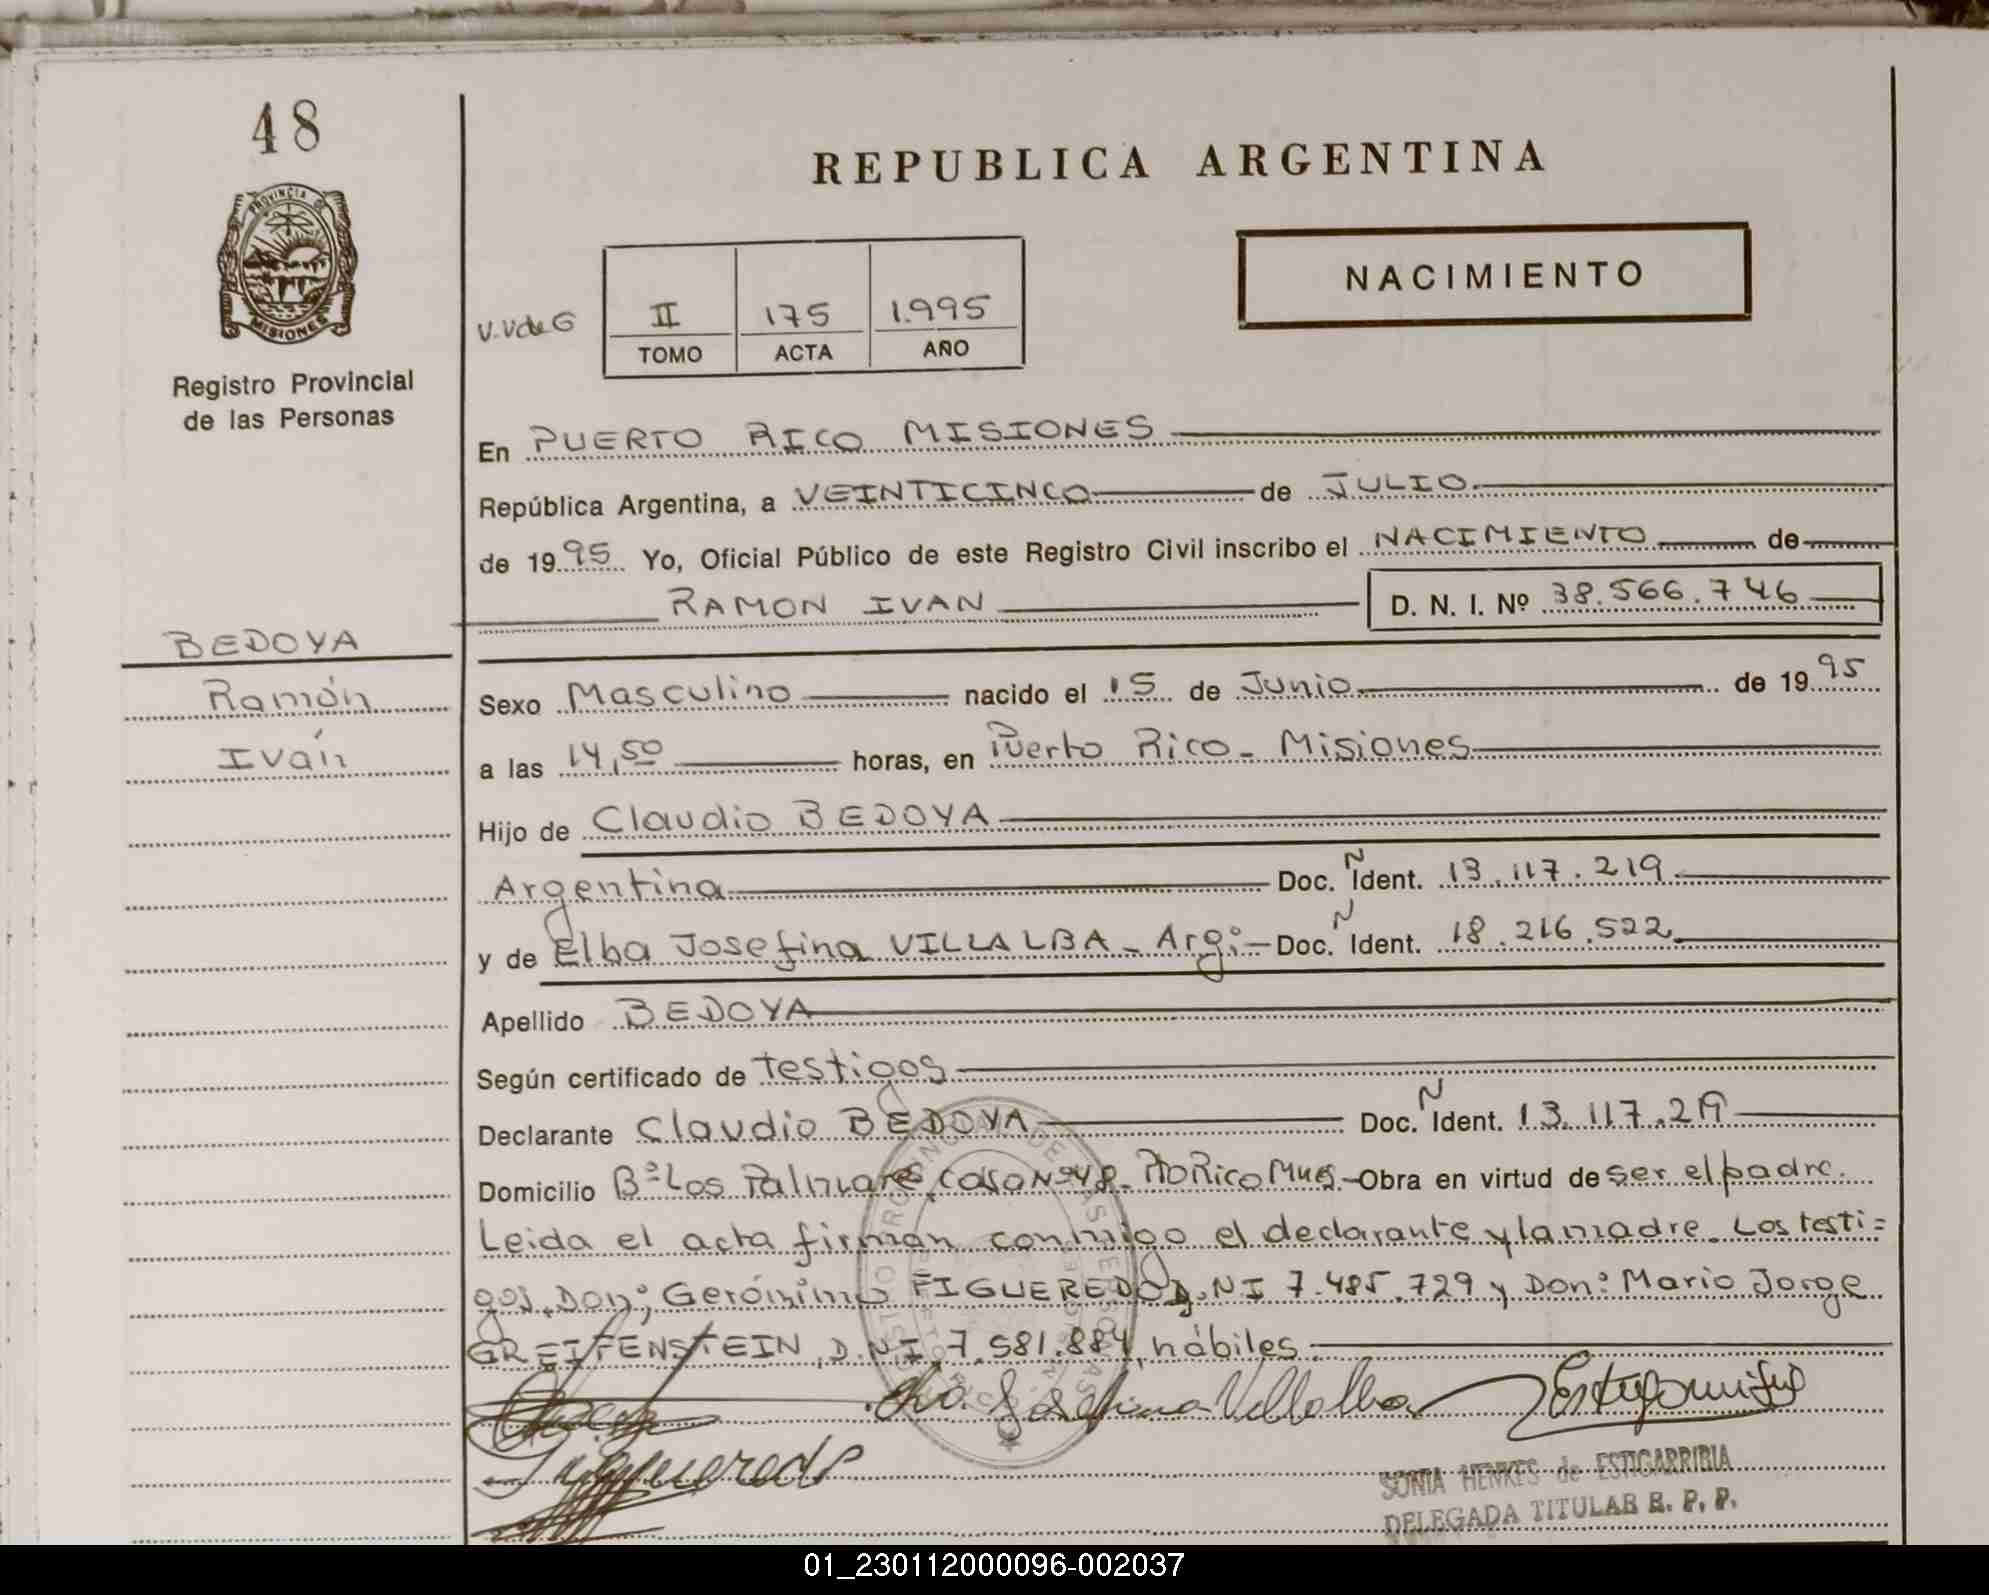 48
PROVINCIA DE
MISIONES
Registro Provincial
de las Personas
REPUBLICA ARGENTINA
NACIMIENTO
V.VdeG
II 175 1.995
TOMO ACTA AÑO
En PUERTO RICO MISIONES
República Argentina, a VEINTICINCO de JULIO
de 1995 Yo, Oficial Público de este Registro Civil inscribo el NACIMIENTO de
RAMON IVAN D. N. I. Nº 38.566.746
BEDOYA
Ramón
Iván
Sexo Masculino nacido el 15 de Junio de 1995
a las 14,50 horas, en Puerto Rico - Misiones
Hijo de Claudio BEDOYA
Argentina Doc. N Ident. 13.117.219
y de Elba Josefina VILLALBA - Arg: Doc. N Ident. 18.216.522
Apellido BEDOYA
Según certificado de testigos
Declarante Claudio BEDOYA Doc. N Ident. 13.117.219
Domicilio Bº Los Palmares, casa Nº 48 - Pto Rico Mnes. - Obra en virtud de ser el padre.
Leida el acta firman conmigo el declarante y la madre. Los testi=
gos, Don; Gerónimo FIGUEREDO D.NI 7.485.729 y Don: Mario Jorge
GREIFENSTEIN, D.NI, 7.581.884, hábiles.
Josefina Villalba
Figueredo
SONIA HENKES de ESTIGARRIBIA
DELEGADA TITULAR R. P. P.
01_230112000096-002037